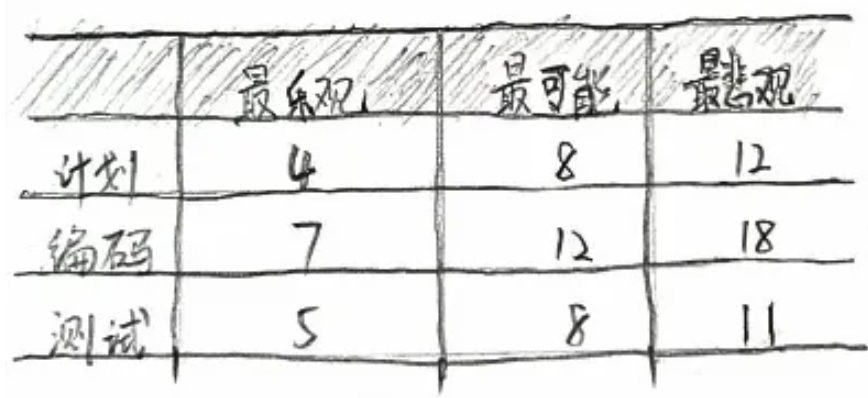 最乐观 最可能 最悲观
计划 4 8 12
编码 7 12 18
测试 5 8 11